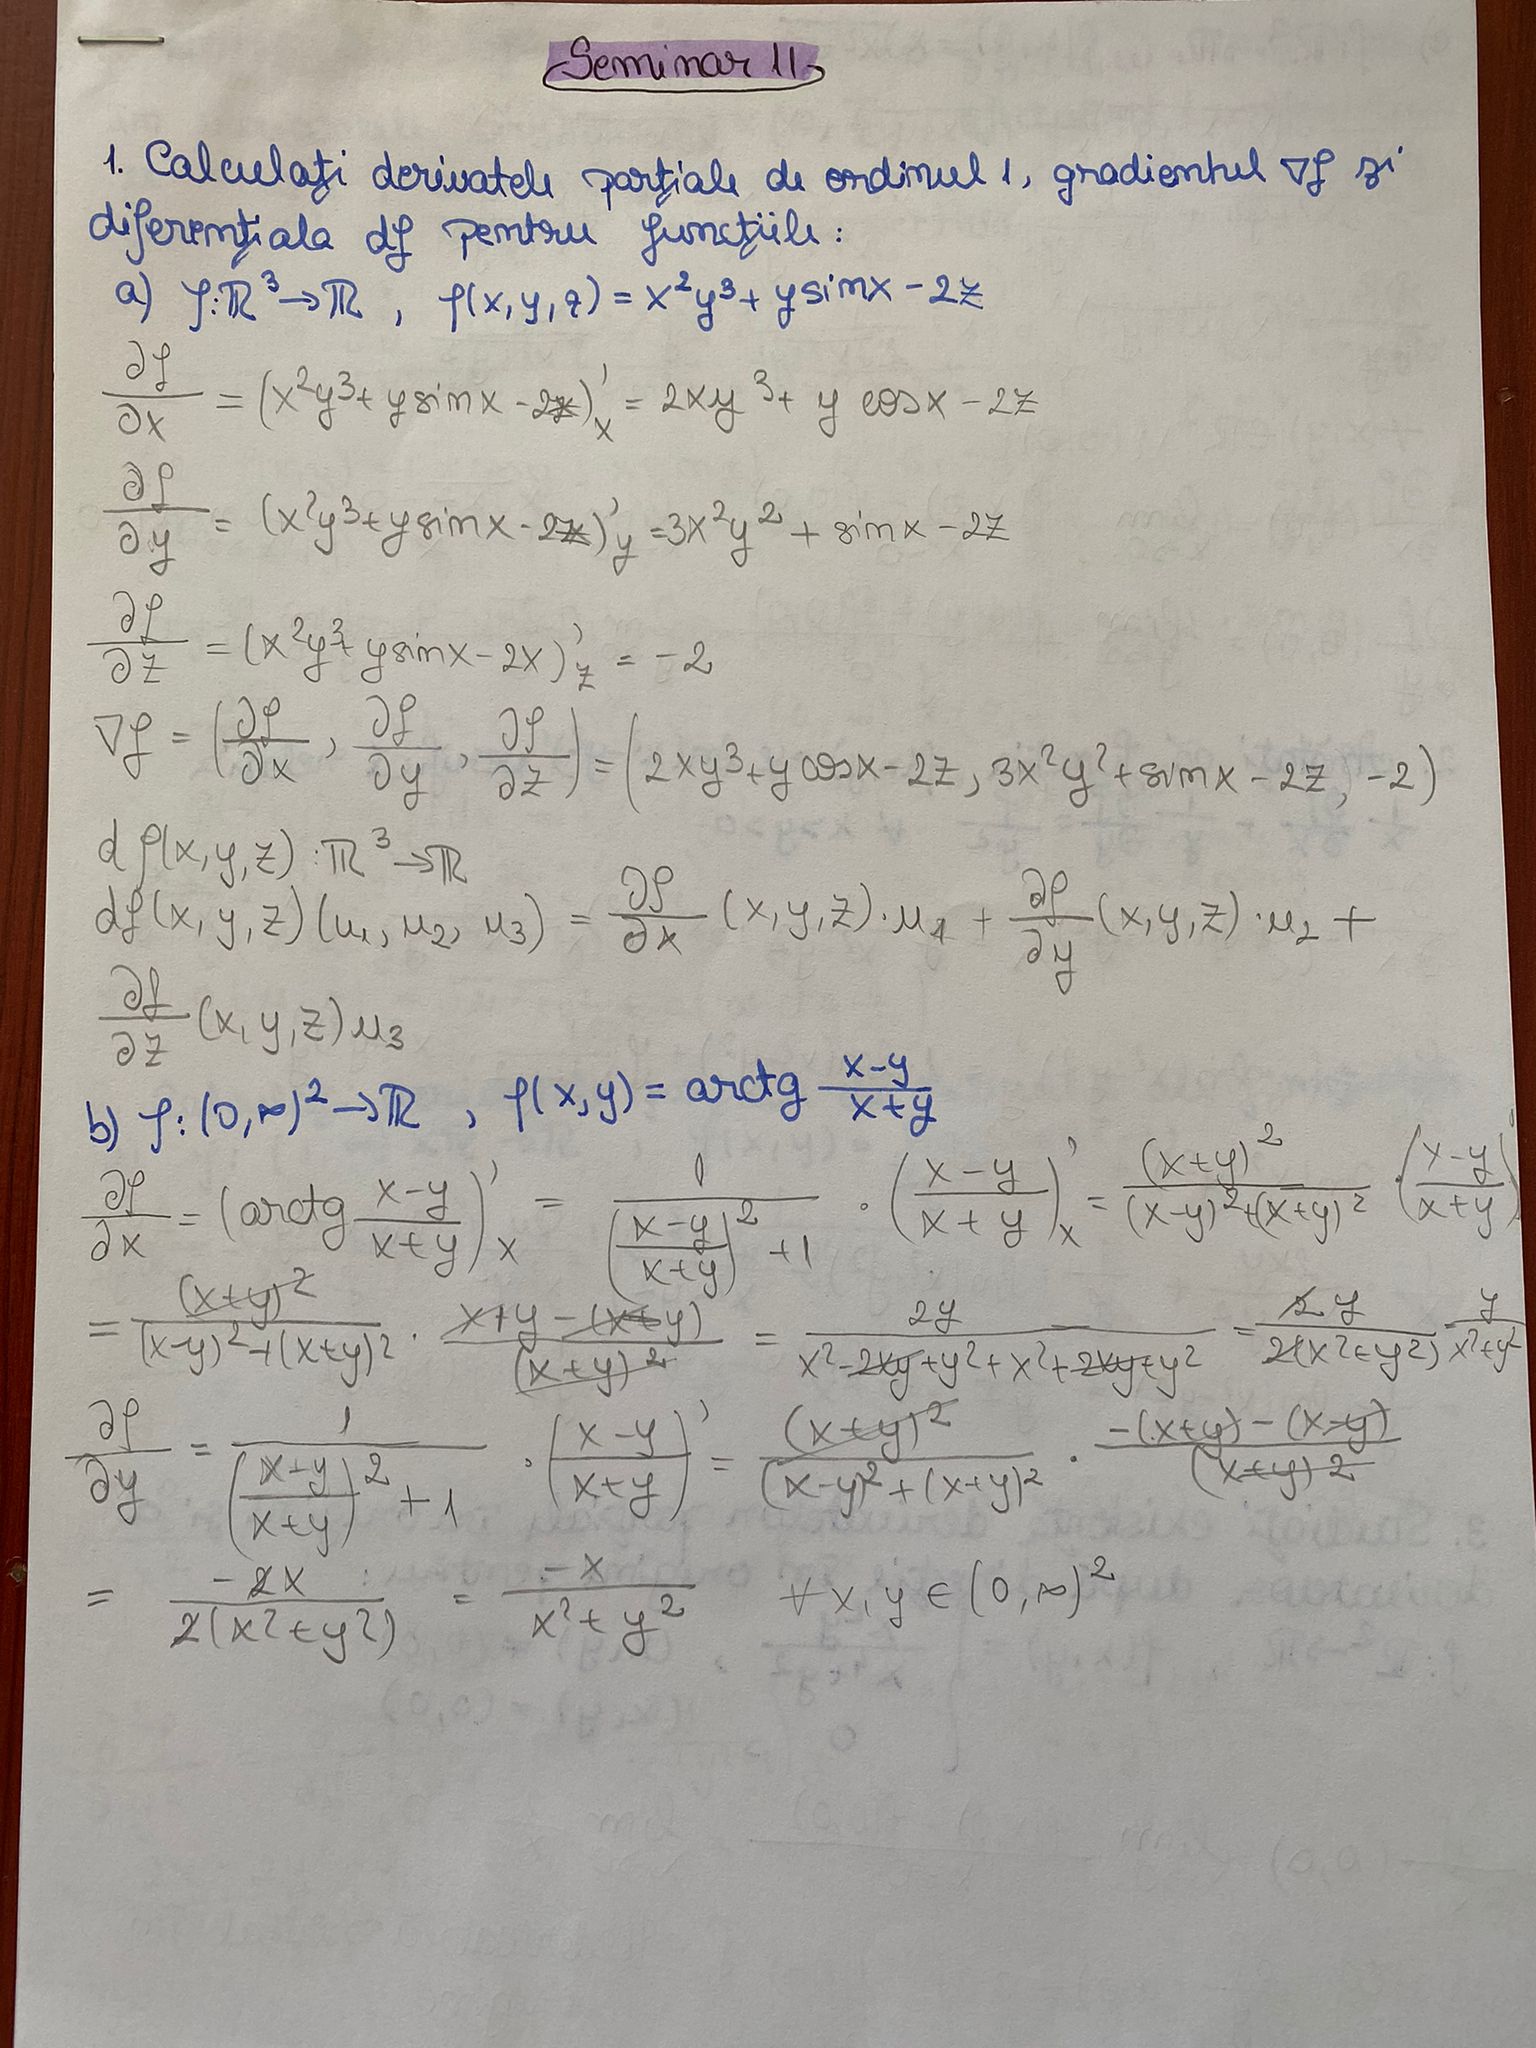 Seminar 11
1. Calculați derivatele parțiale de ordinul 1, gradientul ∇f și
diferențiala df pentru funcțiile:
a) f: ℝ³ → ℝ , f(x, y, z) = x²y³ + y sin x - 2z
∂f/∂x = (x²y³ + y sin x - 2z)'ₓ = 2xy³ + y cos x - 2z
∂f/∂y = (x²y³ + y sin x - 2z)'y = 3x²y² + sin x - 2z
∂f/∂z = (x²y³ + y sin x - 2x)'z = -2
∇f = (∂f/∂x, ∂f/∂y, ∂f/∂z) = (2xy³ + y cos x - 2z, 3x²y² + sin x - 2z, -2)
df(x, y, z) : ℝ³ → ℝ
df(x, y, z)(u₁, u₂, u₃) = ∂f/∂x (x, y, z)·u₁ + ∂f/∂y (x, y, z)·u₂ +
∂f/∂z (x, y, z) u₃
b) f: (0, ∞)² → ℝ , f(x, y) = arctg (x-y)/(x+y)
∂f/∂x = (arctg (x-y)/(x+y))'ₓ = 1/(((x-y)/(x+y))² + 1) · ((x-y)/(x+y))'ₓ = (x+y)²/((x-y)² + (x+y)²) · ((x-y)/(x+y))'
= (x+y)²/((x-y)² + (x+y)²) · (x+y - (x+y))/(x+y)² = 2y/(x² - 2xy + y² + x² + 2xy + y²) = 2y/(2(x² + y²)) = y/(x² + y²)
∂f/∂y = 1/(((x-y)/(x+y))² + 1) · ((x-y)/(x+y))' = (x+y)²/((x-y)² + (x+y)²) · (-(x+y) - (x-y))/(x+y)²
= -2x/(2(x² + y²)) = -x/(x² + y²) ∀ x, y ∈ (0, ∞)²